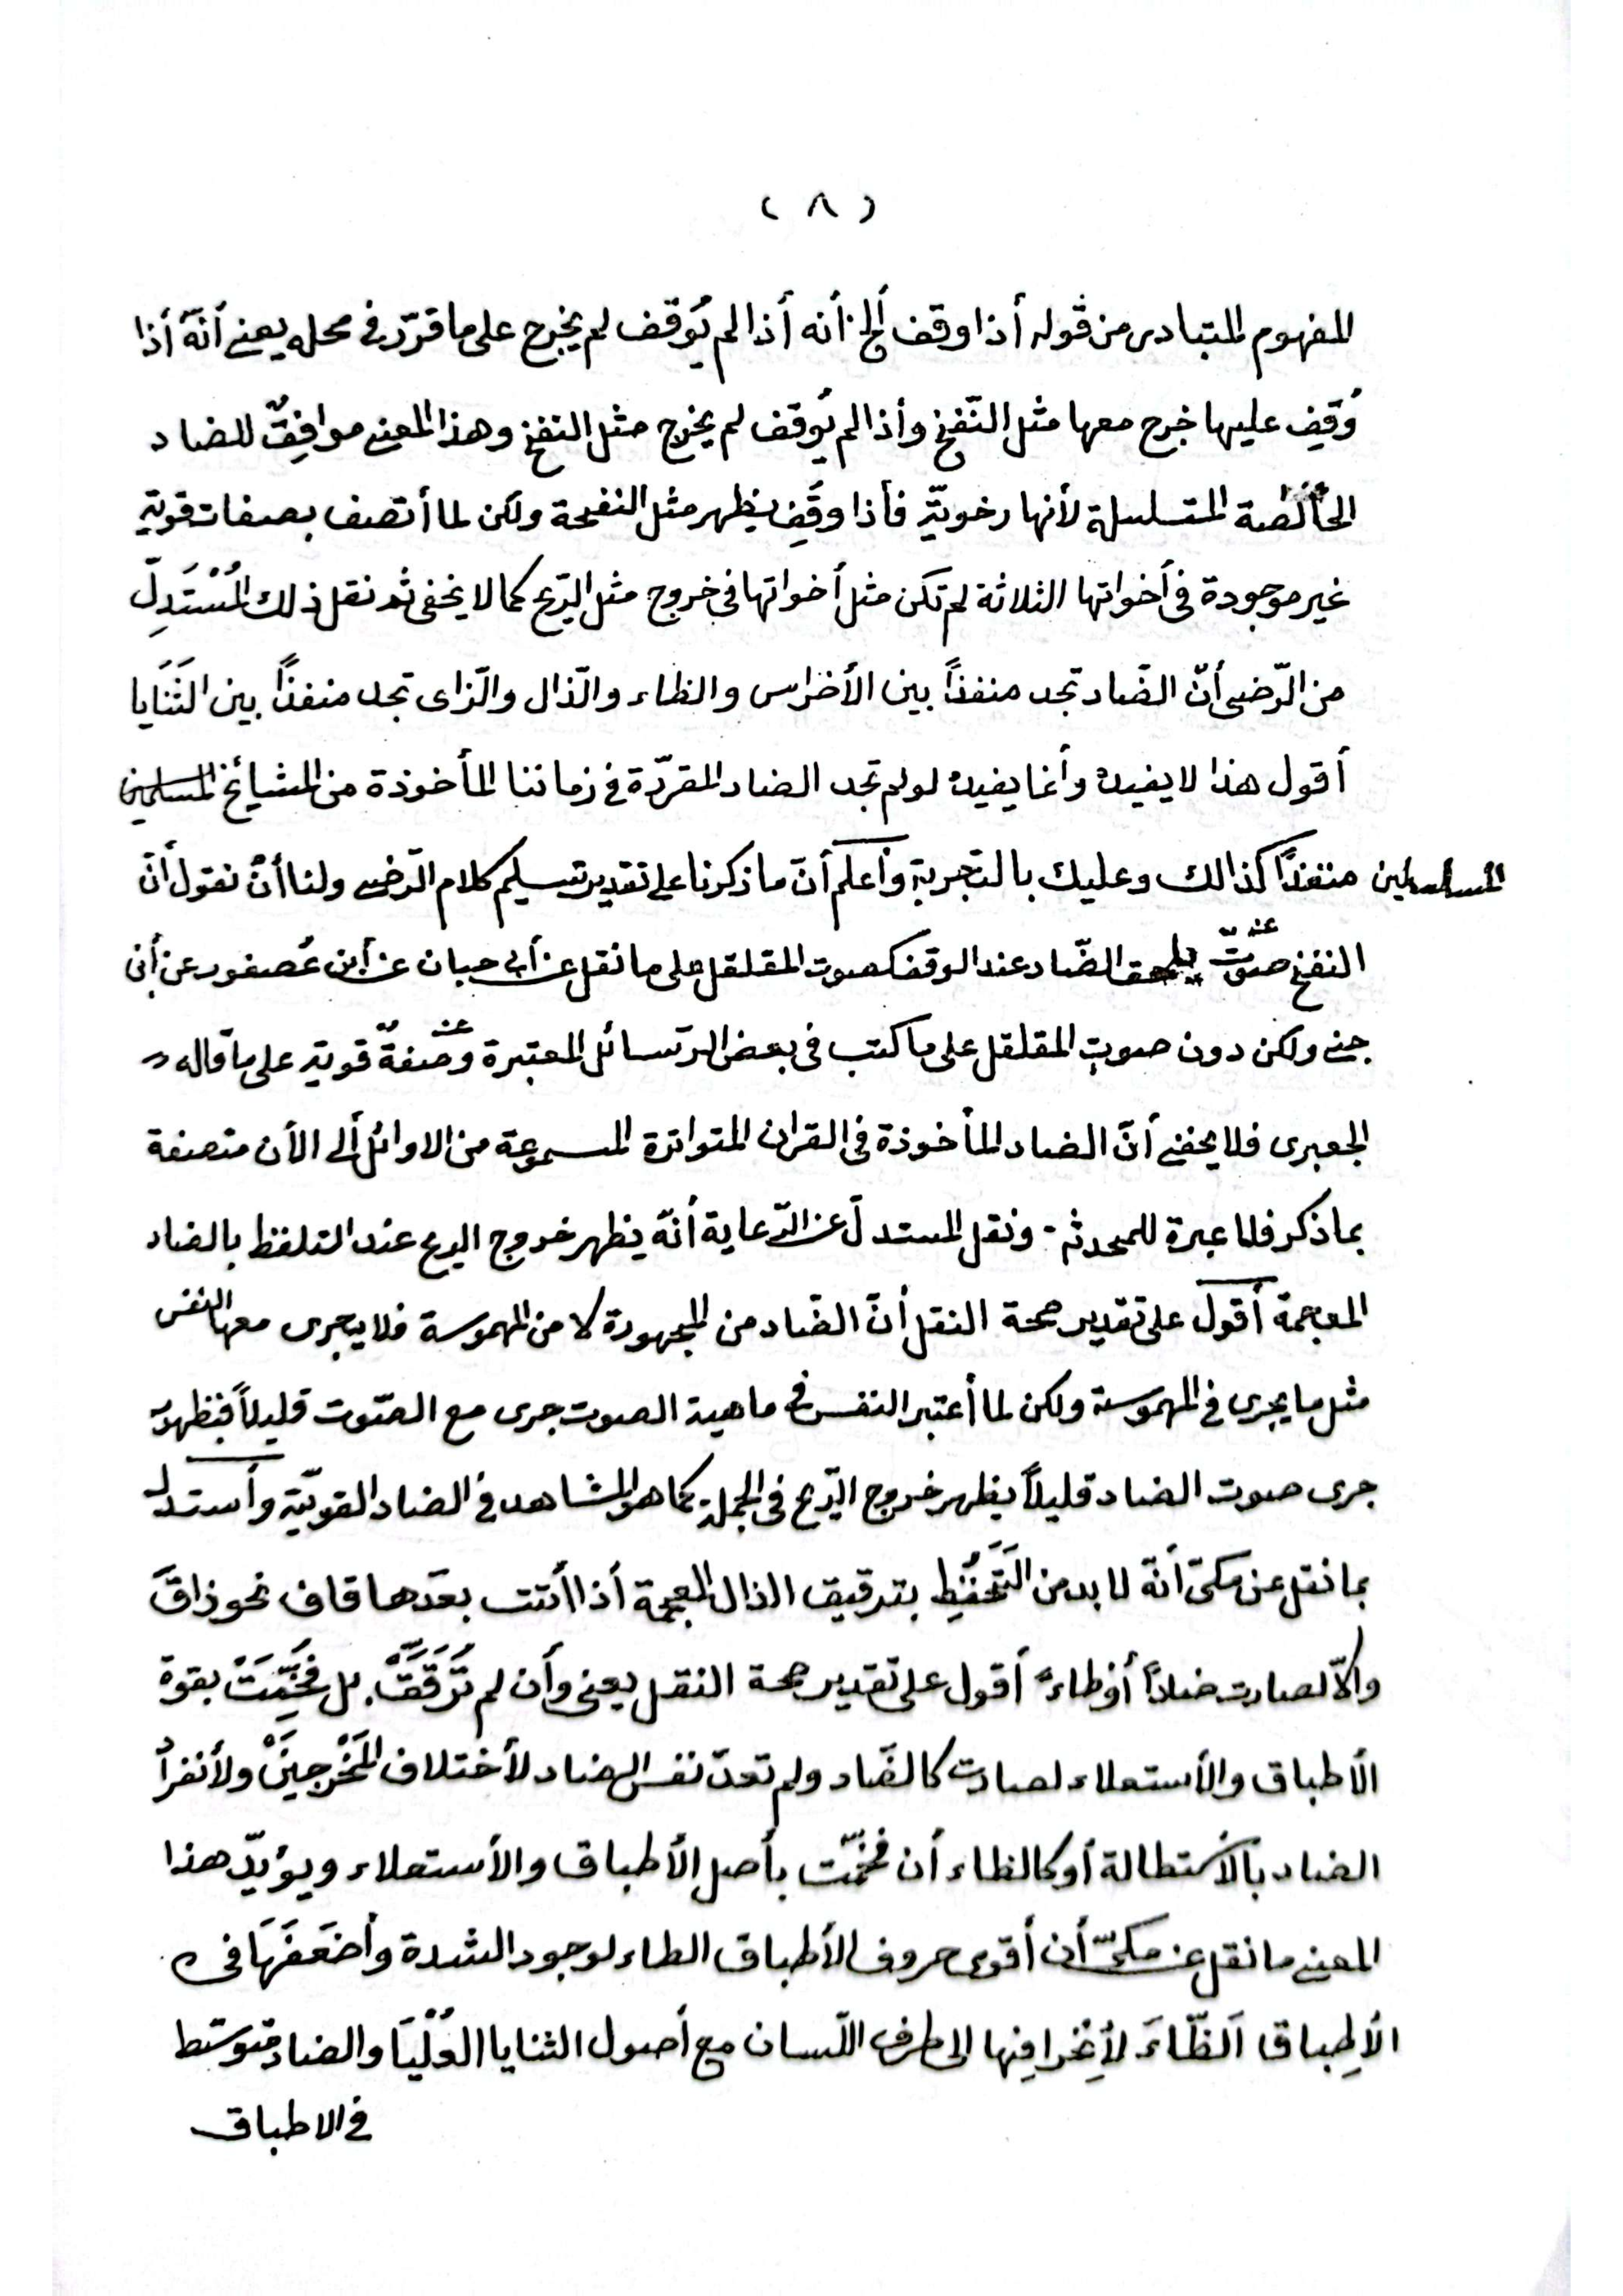 ( ٨ )
المفهوم المتبادر من قوله أذا وقف ألخ أنه أذا لم يُوقف لم يخرج على ما قرّر فى محله يعنى أنّه أذا
وُقِف عليها خرج معها مثل النّفخ وأذا لم يُوقف لم يخرج مثل النفخ وهذا المعنى موافِقٌ للضاد
الخالصة المتسلسلة لأنها رخويّة فأذا وقِف يظهر مثل النفخة ولكن لما أتصف بصفات قوية
غير موجودة فى أخواتها الثلاثة لم تكن مثل أخواتها فى خروج مثل الرّيح كما لا يخفى ثم نقل ذلك المُسْتَدِلّ
من الرّضى أنّ الضّاد تجد منفذاً بين الأضراس والظاء والذّال والزّاى تجد منفذاً بين الثَنَايا
أقول هذا لا يفيده وأنما يفيده لو لم تجد الضاد المقررّة فى زماننا المأخوذة من المشايخ المسلمين
المسلسلين منفذاً كذالك وعليك بالتجربة وأعلم أنّ ما ذكرنا على تقدير تسليم كلام الرّضى ولنا أنْ نقول أنّ
النفخ صوتٌ يلحق الضّاد عند الوقف كصوت المقلقل على ما نقل عن أبى حيان عن أبن عُصفور عن أبن
جنى ولكن دون صوت المقلقل على ما كتب فى بعض الرّسائل المعتبرة وصفةٌ قوية على ما قاله
الجعبرى فلا يخفى أنّ الضاد المأخوذة فى القرأن المتواترة المسموعة من الاوائل ألى الأن متصفة
بما ذكر فلا عبرة للمحدثة ونقل المستدلّ عن الرّعاية أنّه يظهر خروج الريح عند التلفظ بالضاد
المعجمة أقول على تقدير صحة النقل أنّ الضّاد من المجهورة لا من المهموسة فلا يجرى معها النفس
مثل ما يجرى فى المهموسة ولكن لما أعتبر النفس فى ماهية الصوت جرى مع الصّوت قليلاً
جرى صوت الضاد قليلاً يظهر خروج الرّيح فى الجملة كما هو المشاهد فى الضاد القويّة وأستدل
بما نقل عن مكىّ أنّه لا بد من التَحَفُّظِ بترقيق الذال المعجمة أذا أتت بعدَها قاف نحو ذاقَ
والاّ لصارت ضاداً أو ظاءً أقول على تقدير صحة النقل يعنى وأن لم تُرَقَّقْ بل فُخِّمَتْ بقوة
الأطباق والأستعلاء لصارت كالضّاد ولم تعدّ نفس الضاد لأختلاف المَخْرجينْ ولأنفراد
الضاد بالأستطالة أو كالظاء أن فخمّت بأصل الأطباق والأستعلاء ويؤيّد هذا
المعنى ما نقل عن مكىّ أن أقوى حروف الأطباق الطاء لوجود الشدة وأضعَفَهَا فى
الأطِباق اَلظّاءَ لأِنحرافِها الى طرف اللّسان مع أصول الثنايا العُلْيَا والضاد متوسّط
فى الاطباق